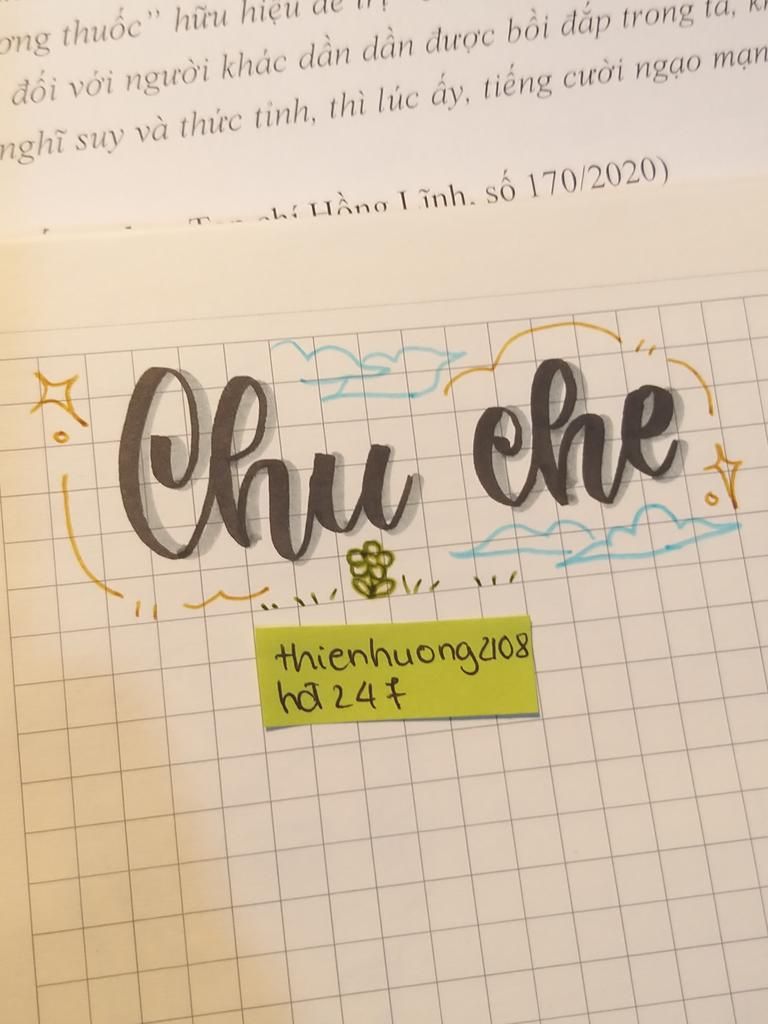 ương thuốc” hữu hiệu để trị
đối với người khác dần dần được bồi đắp trong ta, kh
nghĩ suy và thức tỉnh, thì lúc ấy, tiếng cười ngạo mạn
Tạp chí Hồng Lĩnh, số 170/2020)
Chu che
thienhuong2108
hơi 247